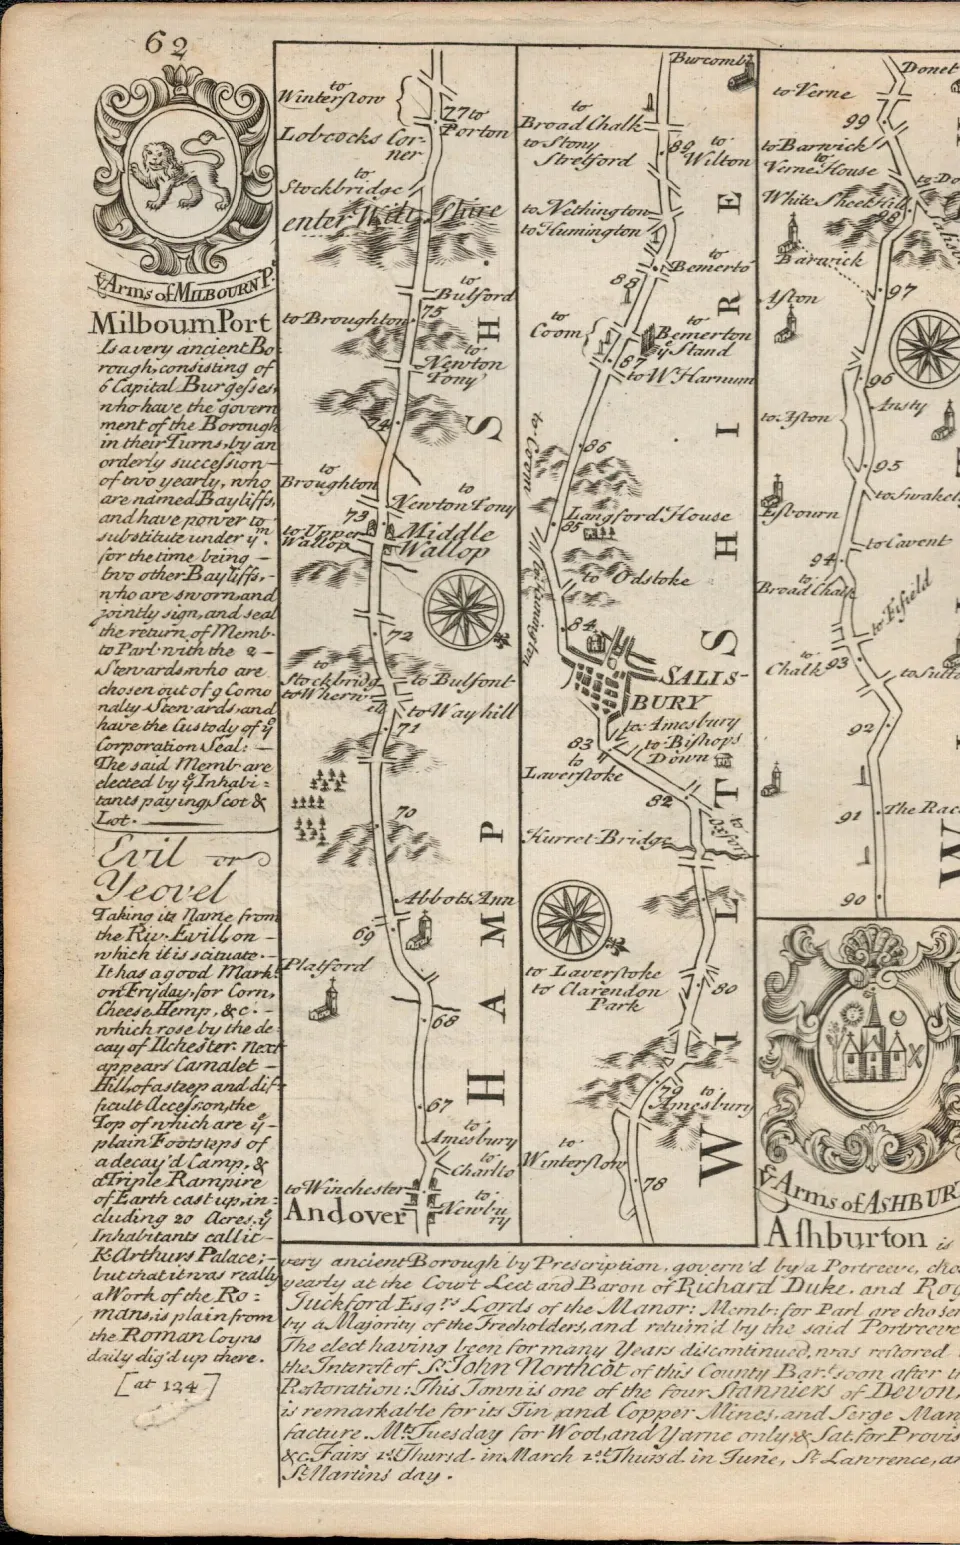 62
Arms of MILBOURN P.
Milbourn Port
Is a very ancient Bo
rough, consisting of
6 Capital Burgesses,
who have the govern
ment of the Borough
in their Turns, by an
orderly succession
of two yearly, who
are named Bayliffs,
and have power to
substitute under ym
for the time being
two other Bayliffs,
who are sworn, and
jointly sign, and seal
the return of Memb.
to Parl. with the 2
Stewards, who are
chosen out of 9 Como
nalty Stewards, and
have the Custody of ye
Corporation Seal:
The said Memb. are
elected by ye Inhabi:
tants paying Scot &
Lot.
Evil or
Yeovel
Taking its Name from
the Riv. Evill, on
which it is scituate.
It has a good Mark:
on Fryday, for Corn,
Cheese, Hemp, &c.
which rose by the de:
cay of Ilchester. Next
appears Camalet
Hill, of a steep and dif
ficult Accession, the
Top of which are ye
plain Footsteps of
a decay'd Camp, &
a Triple Rampire
of Earth cast up, in:
cluding 20 Acres, ye
Inhabitants call it
K. Arthurs Palace;
but that it was really
a Work of the Ro:
mans, is plain from
the Roman Coyns
daily dig'd up there.
[at 124]
to
Winterslow
77 to
Porton
Lobcocks Cor-
ner
to
Stockbridge
enter Wilt Shire
to
Bulford
75
to Broughton
to
Newton
Tony
74
to
Broughton
to
Newton Tony
73
to Upper
Wallop
Middle
Wallop
72
to
Stockbridg
to Bulfont
to Wherw
ell
to Wayhill
71
70
Abbots Ann
69
Platford
68
67
to
Amesbury
to
Charlto
to Winchester
to
Newbu
ry
Andover
HAMP
SH.
Burcomb
to
Broad Chalk
to Stony
Stretford
89
to
Wilton
to Nethington
to Humington
Bemerto
88
to
Coom
to
Bemerton
ye Stand
87
to W. Harnum
to Coom
86
Langford House
85
to Odstoke
84
SALIS-
BURY
to Amesbury
to Bishops
Down
83
to
Laverstoke
82
to
Oxford
Kurret Bridge
to Laverstoke
to Clarendon
Park
80
79
to
Amesbury
to
Winterslow
78
WILTSHIRE
Donet
to Verne
99
to Barwick
to
Verne House
to Do
White Sheet Hill
98
Barwick
97
Aston
96
Ansty
to Aston
95
to Swakel
Esbourn
94
to Cavent
to
Broad Chalk
to Fifield
to
Chalk
93
to Sutto
92
91
The Rac
90
W
Arms of ASHBUR
Ashburton is
very ancient Borough by Prescription, govern'd by a Portreeve, cho
yearly at the Court Leet and Baron of Richard Duke, and Rog
Tuckford Esqrs. Lords of the Manor: Memb: for Parl are chosen
by a Majority of the Freeholders, and return'd by the said Portreeve
The elect having been for many Years discontinued, was restored
the Interest of Sr. John Northcot of this County Bart. soon after
Restoration: This Town is one of the four Stanniers of Devon,
is remarkable for its Tin and Copper Mines, and Serge Man
facture. Mt. Tuesday for Wool, and Yarne only, & Sat. for Provis
&c. Fairs 1st Thursd. in March 1st Thursd. in June, St. Lawrence, an
St. Martins day.